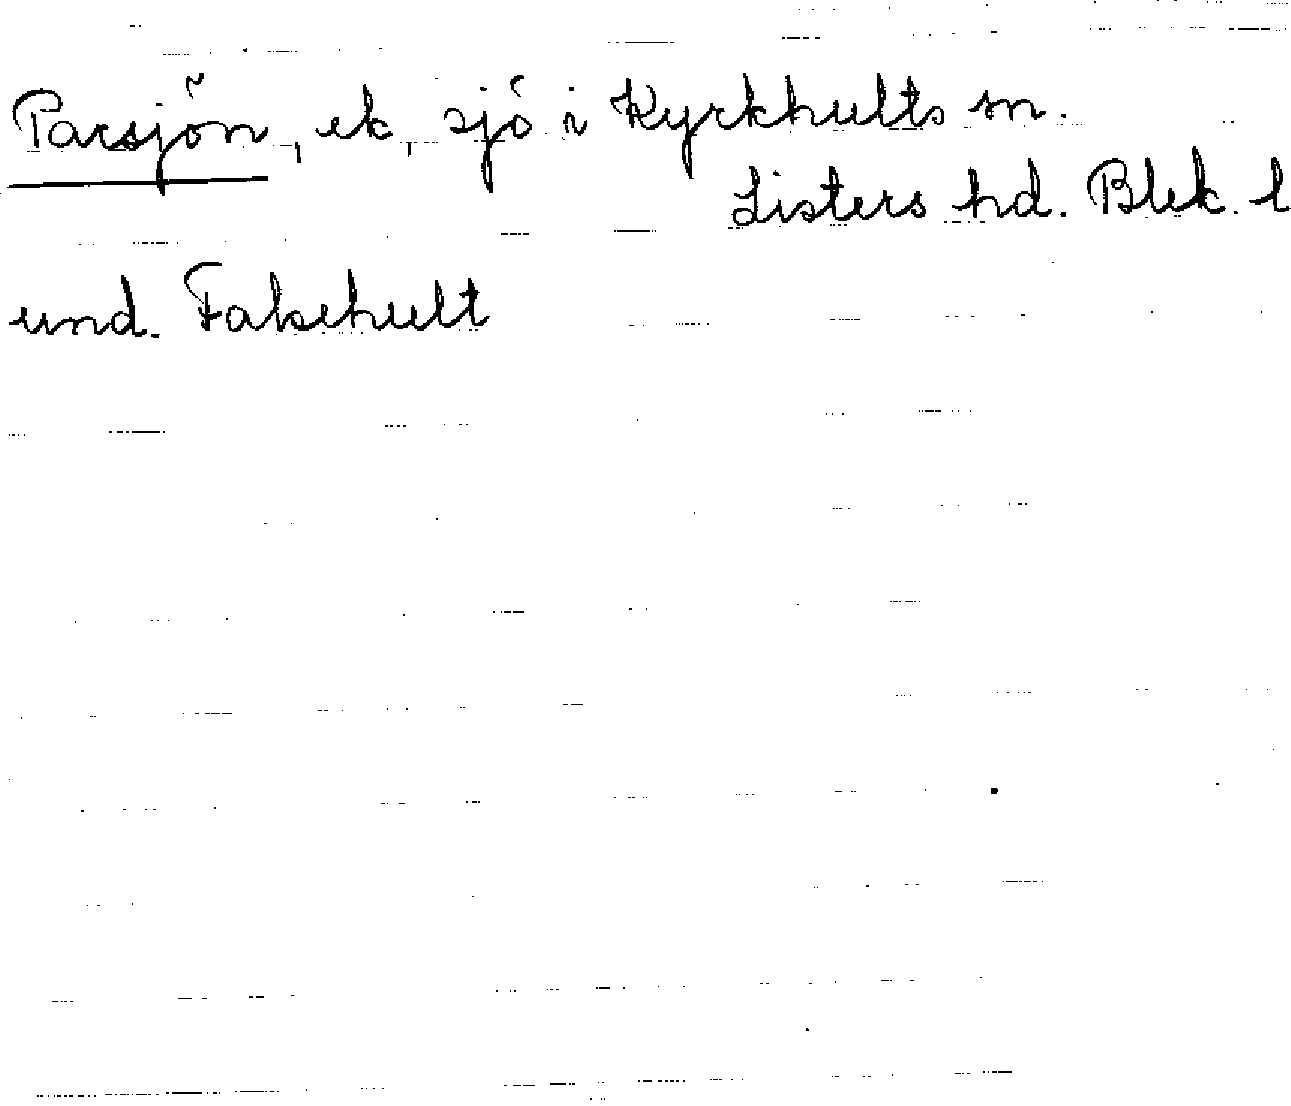 Parsjön, ek, sjö i Kyrkhults sn.
Listers hd. Blek. l
und. Faksehult